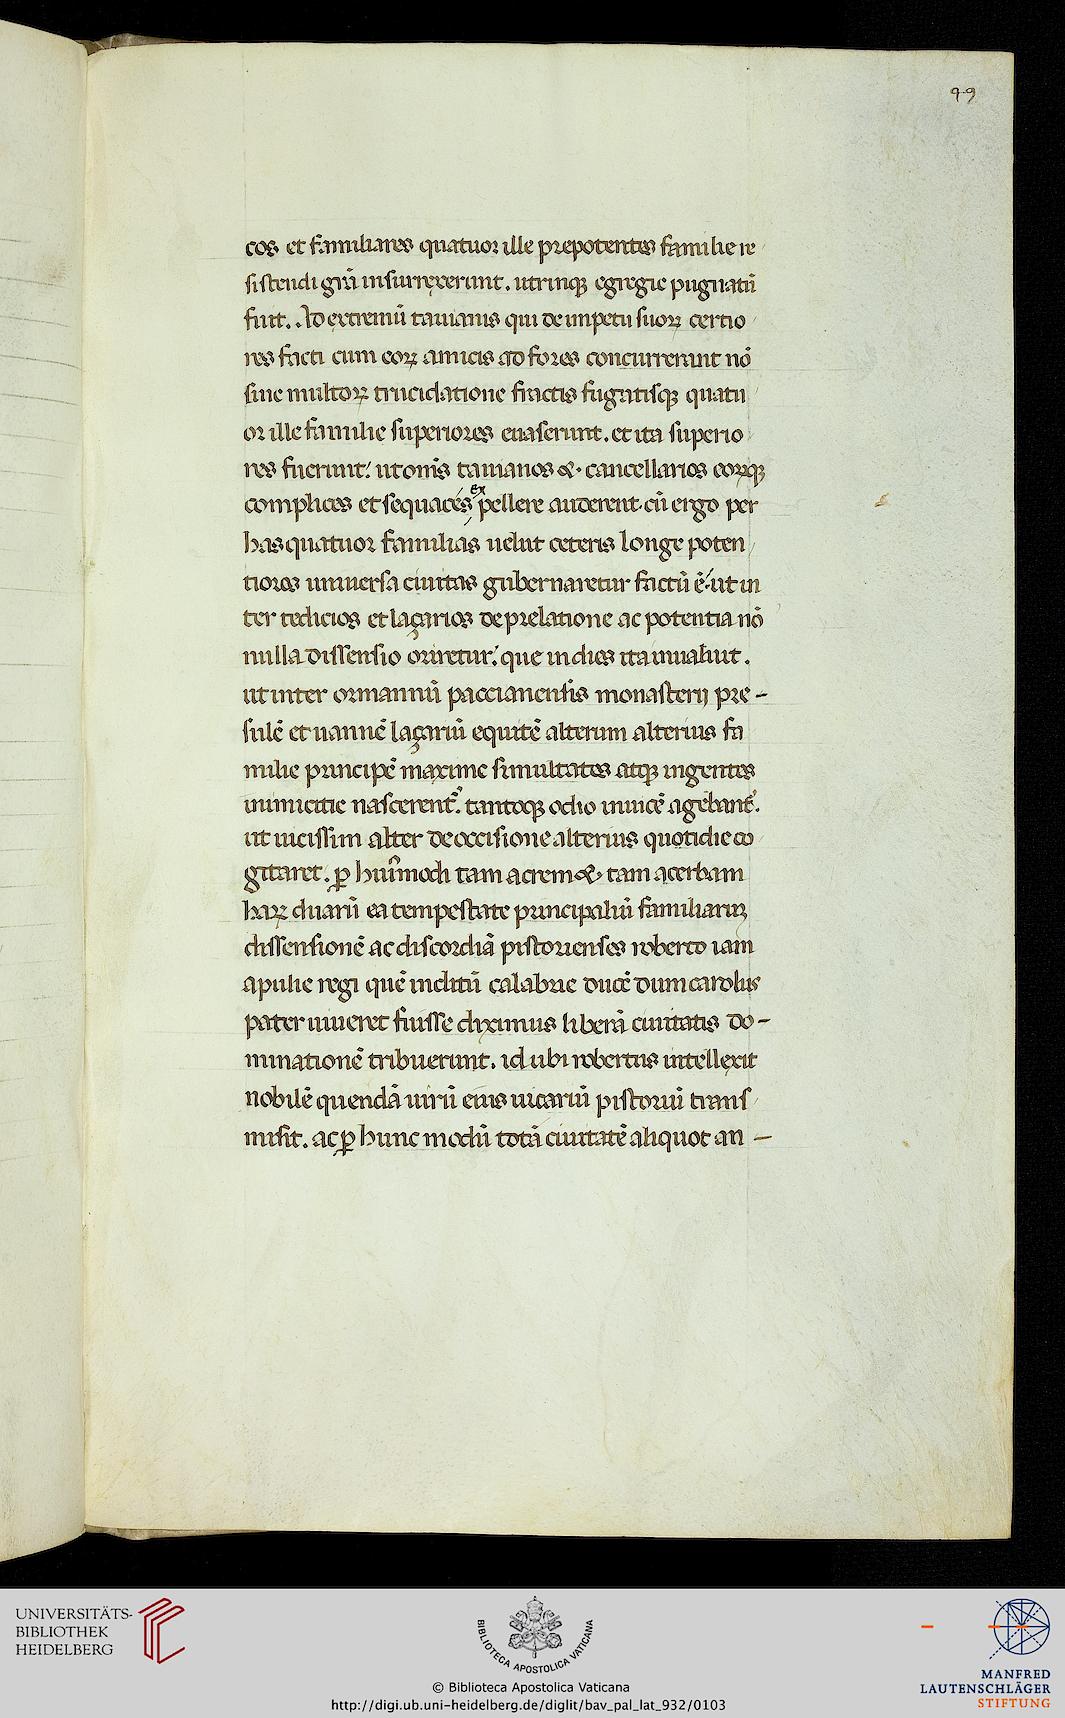 99
cos et familiares quatuor ille prepotentes familie re
sistendi grã insurrexerunt. utrinqꝫ egregie pugnatũ
fuit. Ad extremũ tauianis qui de impetu suoꝝ certio
res facti cum eoꝝ amicis ad fores concurrerunt nõ
sine multoꝝ trucidatione fractis fugatisqꝫ quatu
or ille familie superiores euaserunt. et ita superio
res fuerunt: ut om̃s tauianos &. cancellarios eorũqꝫ
complices et sequaces expellere auderent. cũ ergo per
has quatuor familias uelut ceteris longe poten
tiores uniuersa ciuitas gubernaretur factũ ẽ: ut in
ter tedicios et laçarios de prelatione ac potentia nõ
nulla dissensio oriretur: que indies ita inualuit.
ut inter ormannũ paccianensis monasterij pre-
sulẽ et uannẽ laçariũ equitẽ alterum alterius fa
milie principẽ maxime simultates atqꝫ ingentes
inimicitie nascerent᷑. tantoqꝫ odio inuicẽ agebant᷑.
ut uicissim alter de occisione alterius quotidie co
gitaret. ꝑ huiꝰmodi tam acrem &. tam acerbam
haꝝ duarũ ea tempestate principaliũ familiarũ
dissensionẽ ac discordiã pistorienses roberto iam
apulie regi quẽ inclitũ calabrie ducẽ dum carolus
pater uiueret fuisse diximus liberã ciuitatis do-
minationẽ tribuerunt. id ubi robertus intellexit
nobilẽ quendã uirũ eius uicariũ pistoriũ trans
misit. ac ꝑ hunc modũ totã ciuitatẽ aliquot an-
UNIVERSITÄTS-
BIBLIOTHEK
HEIDELBERG
BIBLIOTECA APOSTOLICA VATICANA
© Biblioteca Apostolica Vaticana
http://digi.ub.uni-heidelberg.de/diglit/bav_pal_lat_932/0103
MANFRED
LAUTENSCHLÄGER
STIFTUNG